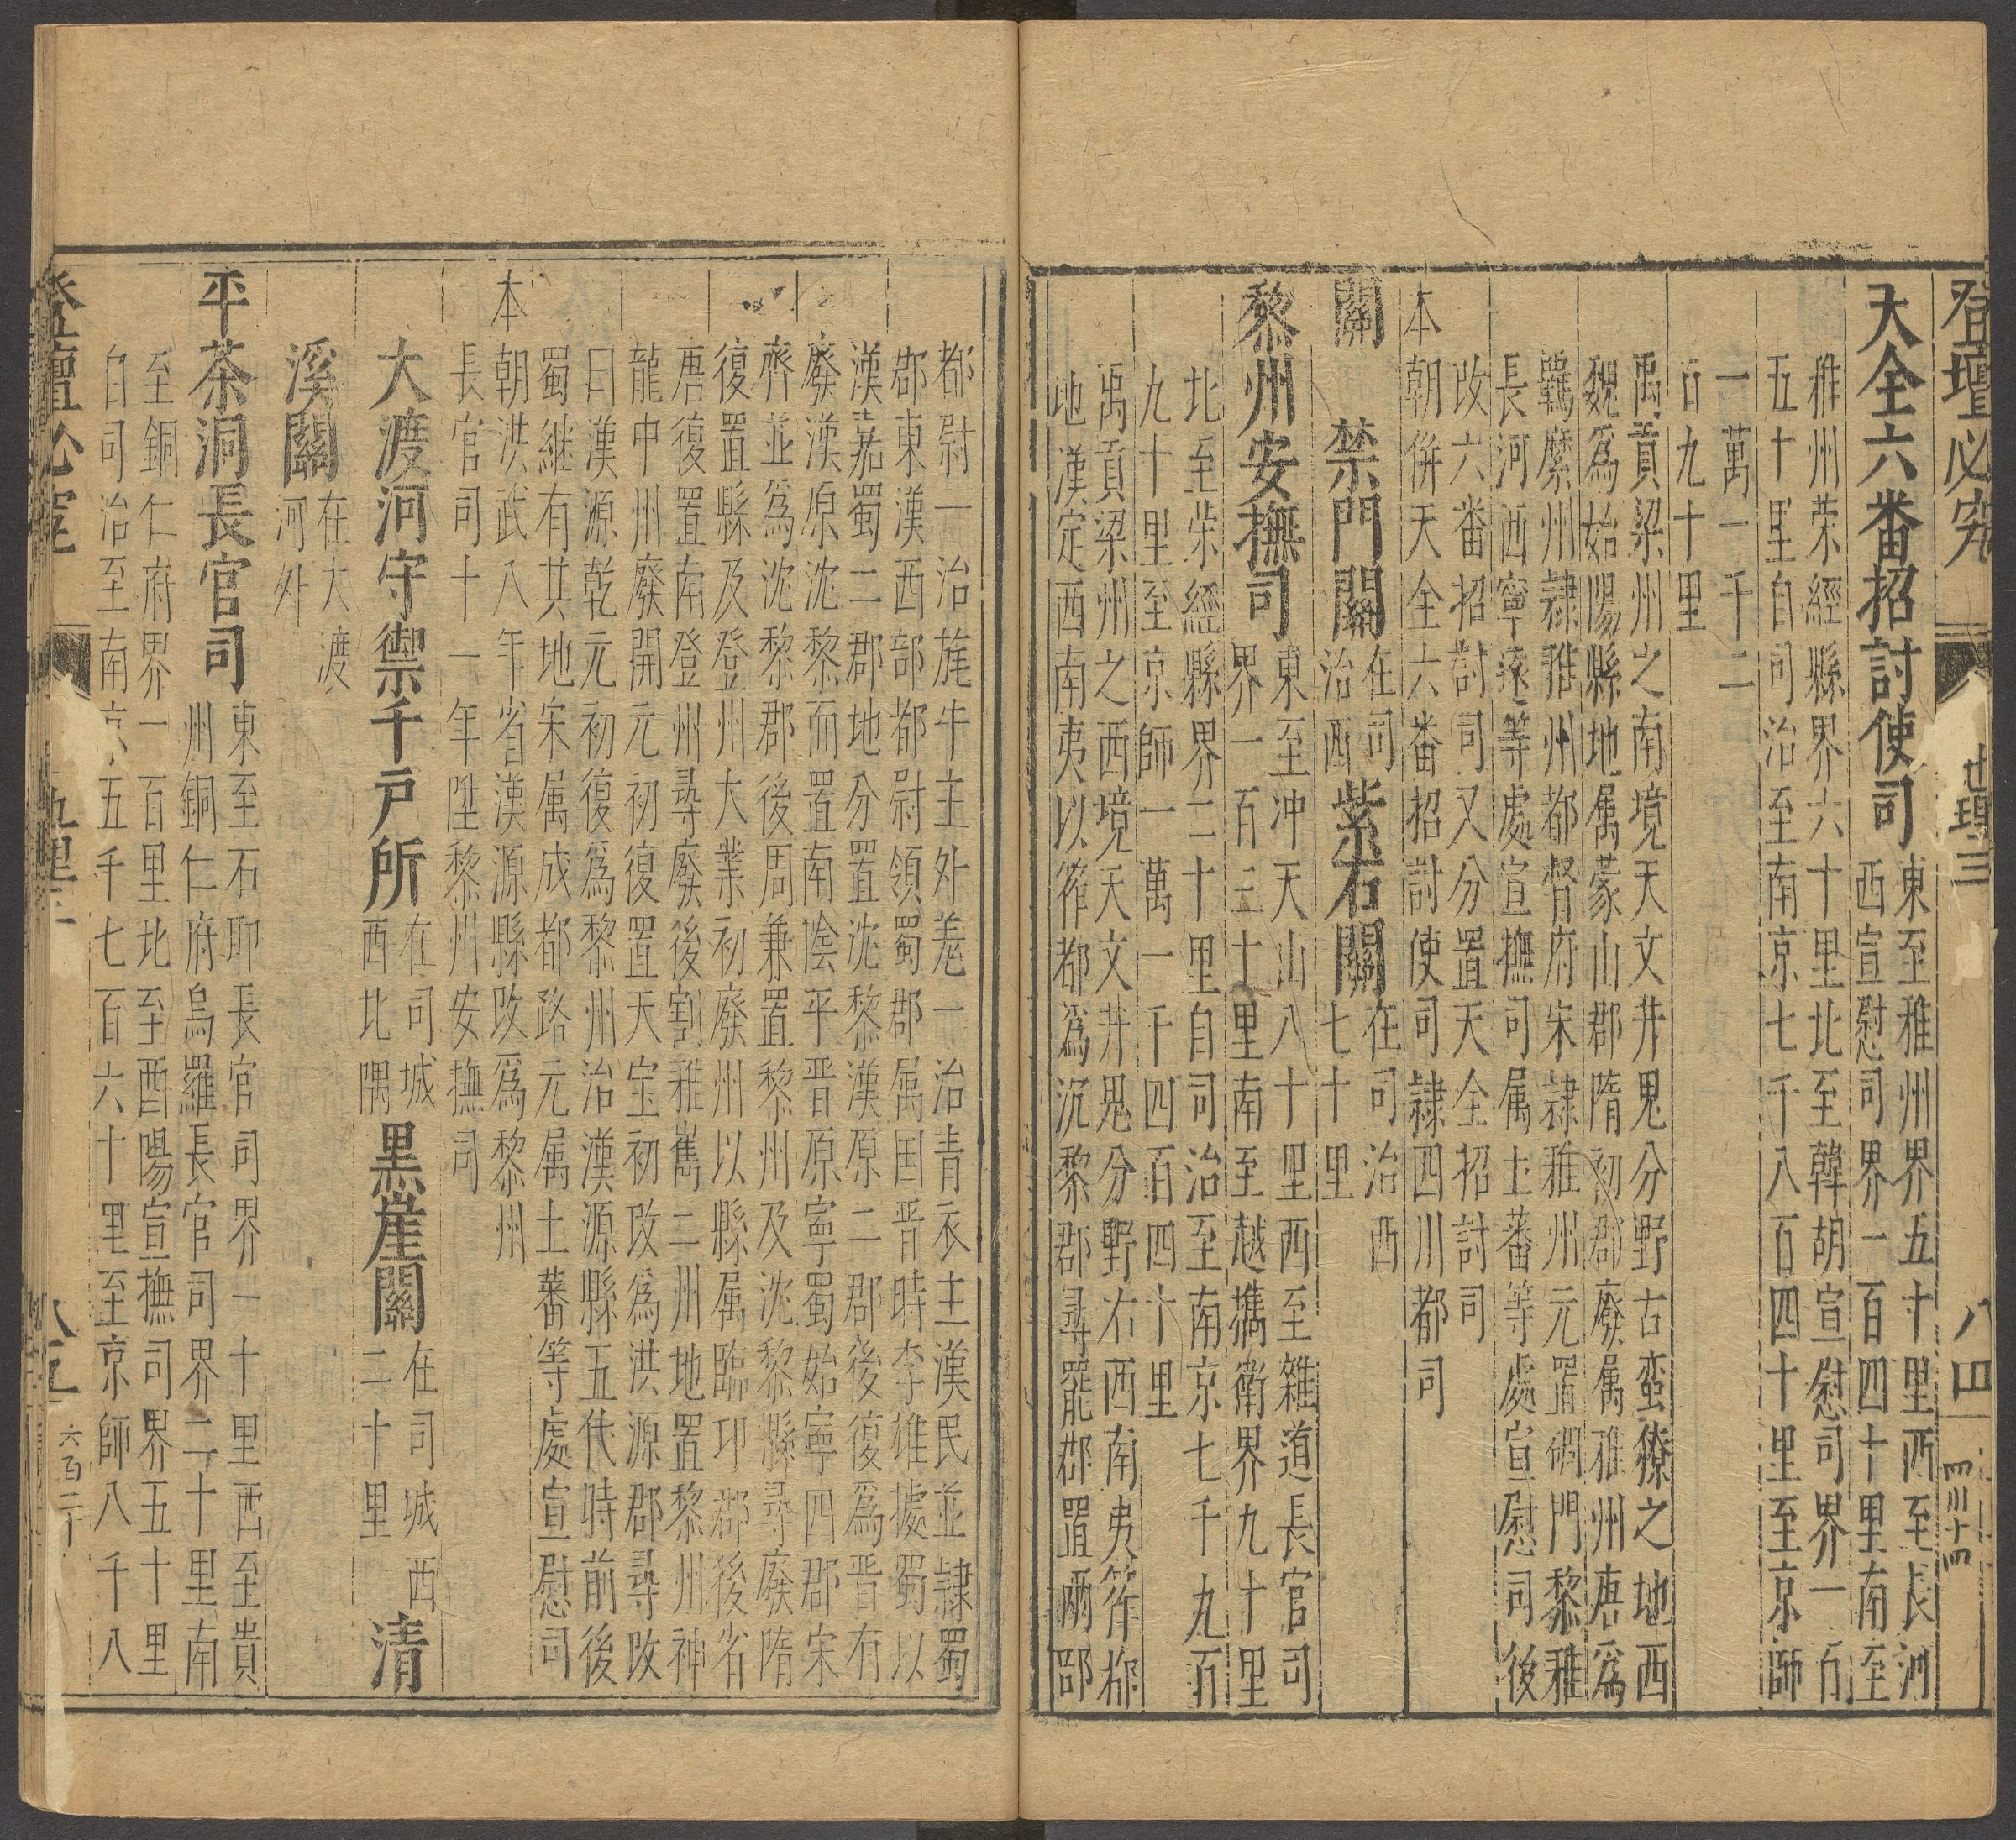 登壇必究
地理三
八四
四川十四
天全六番招討使司
東至雅州界五十里西至長河
西宣慰司界一百四十里南至
雅州荣經縣界六十里北至韓胡宣慰司界一百
五十里自司治至南京七千八百四十里至京師
一萬一千二
百九十里
禹貢梁州之南境天文井鬼分野古蛮獠之地西
魏爲始陽縣地属蒙山郡隋初郡廢属雅州唐爲
羈縻州隷雅州都督府宋隷雅州元置碉門黎雅
長河西寧遠等處宣撫司属土蕃等處宣慰司後
改六番招討司又分置天全招討司
本朝併天全六番招討使司隷四川都司
關
禁門關
在司
治西
紫石關
在司治西
七十里
黎州安撫司
東至冲天山八十里西至雜道長官司
界一百三十里南至越攜衛界九十里
北至荣經縣界二十里自司治至南京七千九百
九十里至京師一萬一千四百四十里
禹貢梁州之西境天文井鬼分野右西南夷筰都
地漢定西南夷以筰都爲沉黎郡尋罷郡置兩部
都尉一治旄牛主外羗一治青衣主漢民並隷蜀
郡東漢西部都尉領蜀郡属国晋時李雄據蜀以
漢嘉蜀二郡地分置沈黎漢原二郡後復爲晋有
廢漢原沈黎而置南陰平晋原寧蜀始寧四郡宋
齊並爲沈黎郡後周兼置黎州及沈黎縣尋廢隋
復置縣及登州大業初廢州以縣属臨邛郡後省
唐復置南登州尋廢後割雅雟二州地置黎州神
龍中州廢開元初復置天宝初改爲洪源郡尋改
曰漢源乾元初復爲黎州治漢源縣五代時前後
蜀継有其地宋属成都路元属土蕃等處宣慰司
本朝洪武八年省漢源縣改爲黎州
長官司十一年陞黎州安撫司
大渡河守禦千戸所
在司城
西北隅
黒崖關
在司城西
二十里
清
溪關
在大渡
河外
平茶洞長官司
東至石耶長官司界一十里西至貴
州銅仁府烏羅長官司界二十里南
至銅仁府界一百里北至酉陽宣撫司界五十里
自司治至南京五千七百六十里至京師八千八
登壇必究
八五
六百二十